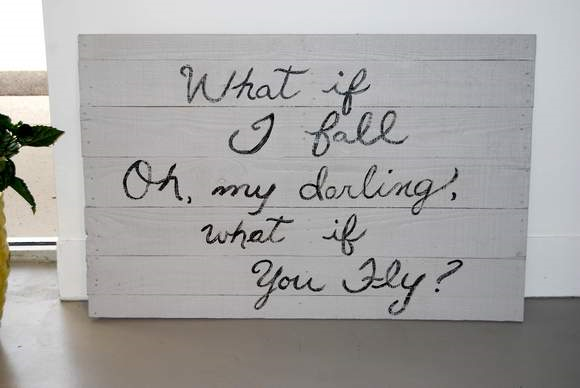 What if
I fall
Oh, my darling,
what if
You Fly?